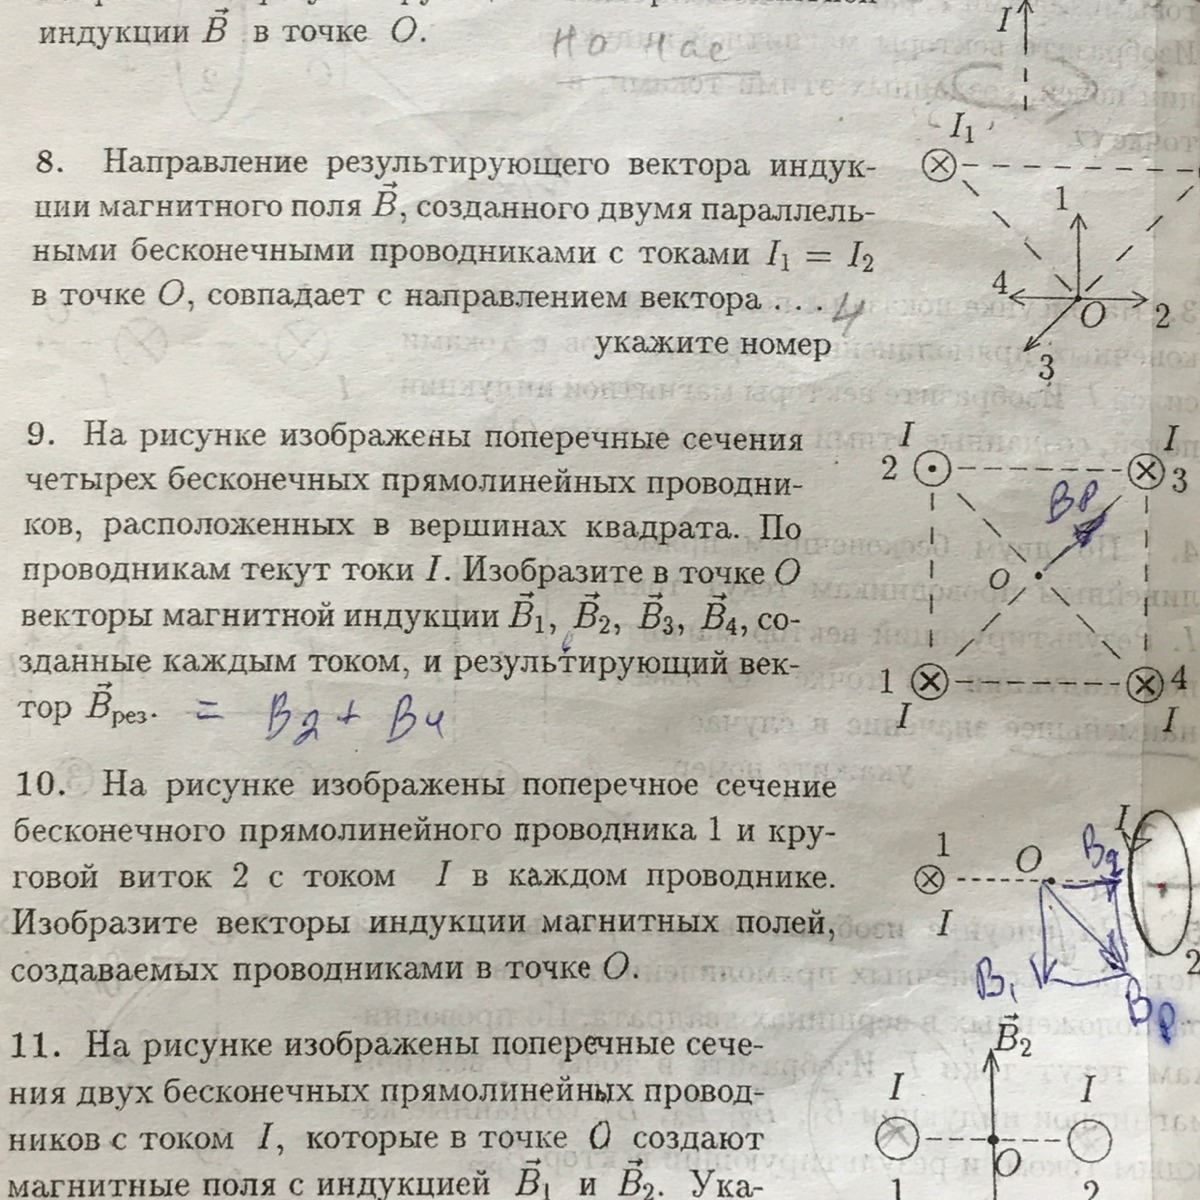 индукции B⃗ в точке O.
но нас
I
8. Направление результирующего вектора индук-
ции магнитного поля B⃗, созданного двумя параллель-
ными бесконечными проводниками с токами I₁ = I₂
в точке O, совпадает с направлением вектора .... 4
укажите номер
I₁
1
4
O
2
3
9. На рисунке изображены поперечные сечения
четырех бесконечных прямолинейных проводни-
ков, расположенных в вершинах квадрата. По
проводникам текут токи I. Изобразите в точке O
векторы магнитной индукции B⃗₁, B⃗₂, B⃗₃, B⃗₄, со-
зданные каждым током, и результирующий век-
тор B⃗рез. = B2 + B4
I I
2 3
Bр
O
1 4
I I
10. На рисунке изображены поперечное сечение
бесконечного прямолинейного проводника 1 и кру-
говой виток 2 с током I в каждом проводнике.
Изобразите векторы индукции магнитных полей,
создаваемых проводниками в точке O.
I
1 O B2
I
2
B1
Bр
11. На рисунке изображены поперечные сече-
ния двух бесконечных прямолинейных провод-
ников с током I, которые в точке O создают
магнитные поля с индукцией B⃗₁ и B⃗₂. Ука-
B⃗₂
I I
O
1 2